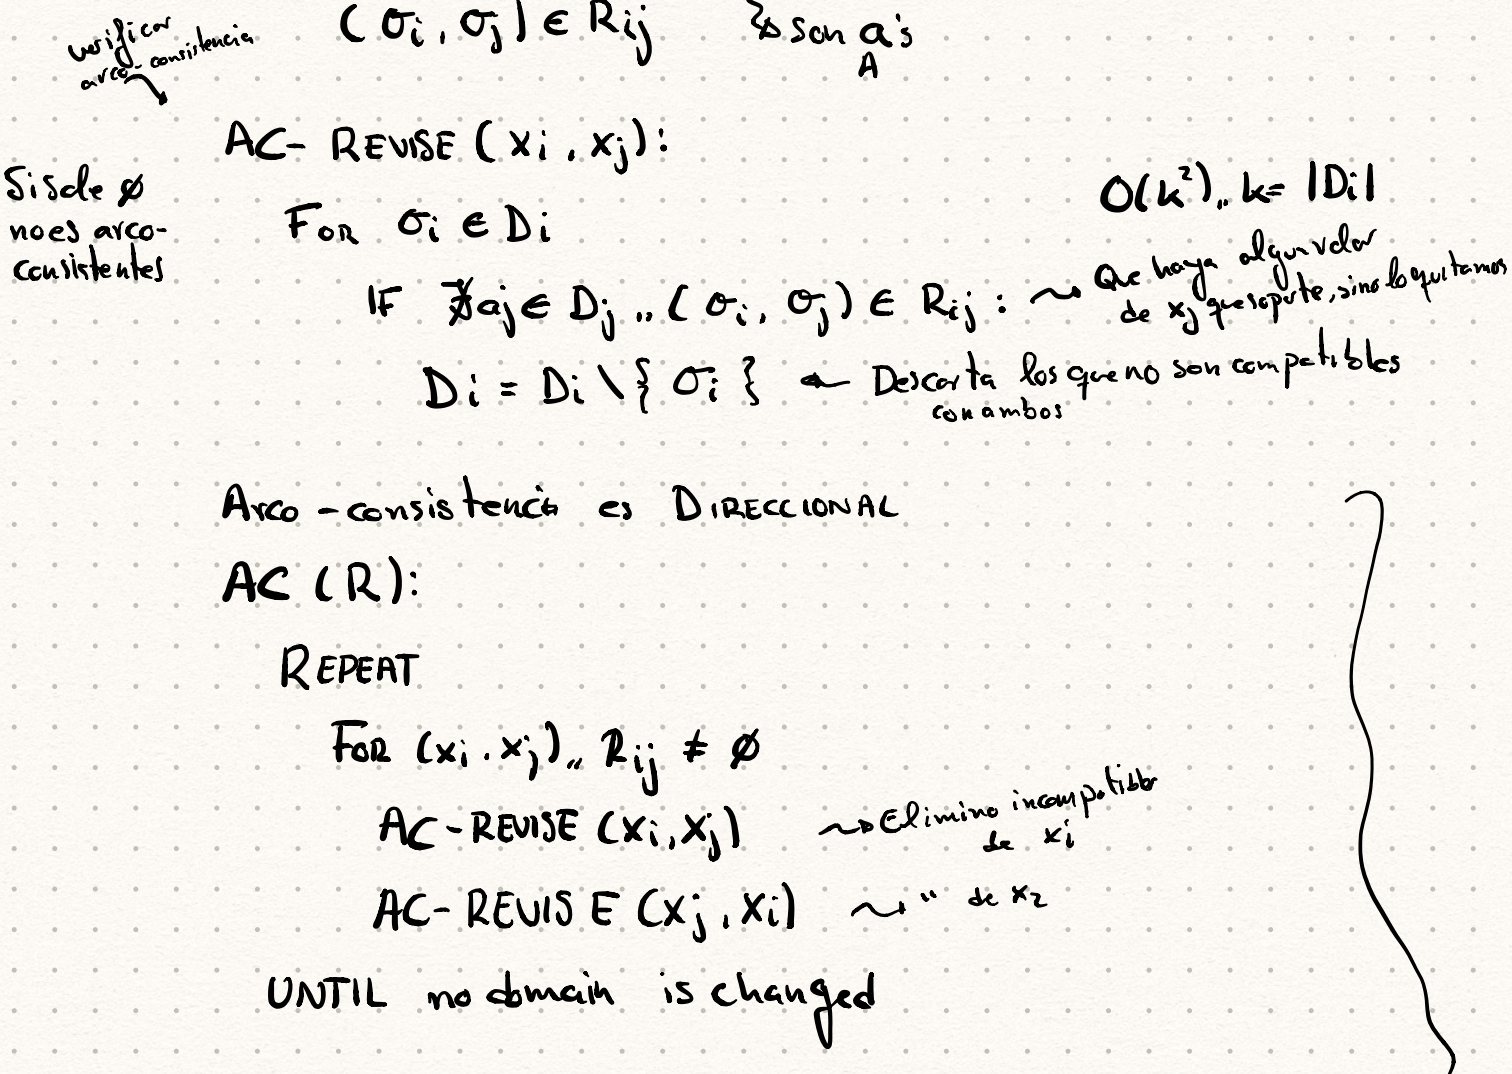 (σi, σj) ∈ Rij
↳ son a's
A
verificar
arco-consistencia
AC-REVISE (xi, xj):
Si sale ∅
no es arco-
consistentes
FOR σi ∈ Di
O(k²),, k= |Di|
IF ∄ aj ∈ Dj ,, (σi, σj) ∈ Rij : ⇝ Que haya algun valor
de xj que soporte, sino lo quitamos
Di = Di \ { σi } ← Descarta los que no son compatibles
con ambos
Arco-consistencia es DIRECCIONAL
AC (R):
REPEAT
FOR (xi, xj),, Rij ≠ ∅
AC-REVISE (xi, xj) ⇝ Elimino incompatibles
de xi
AC-REVISE (xj, xi) ⇝ " de x2
UNTIL no domain is changed